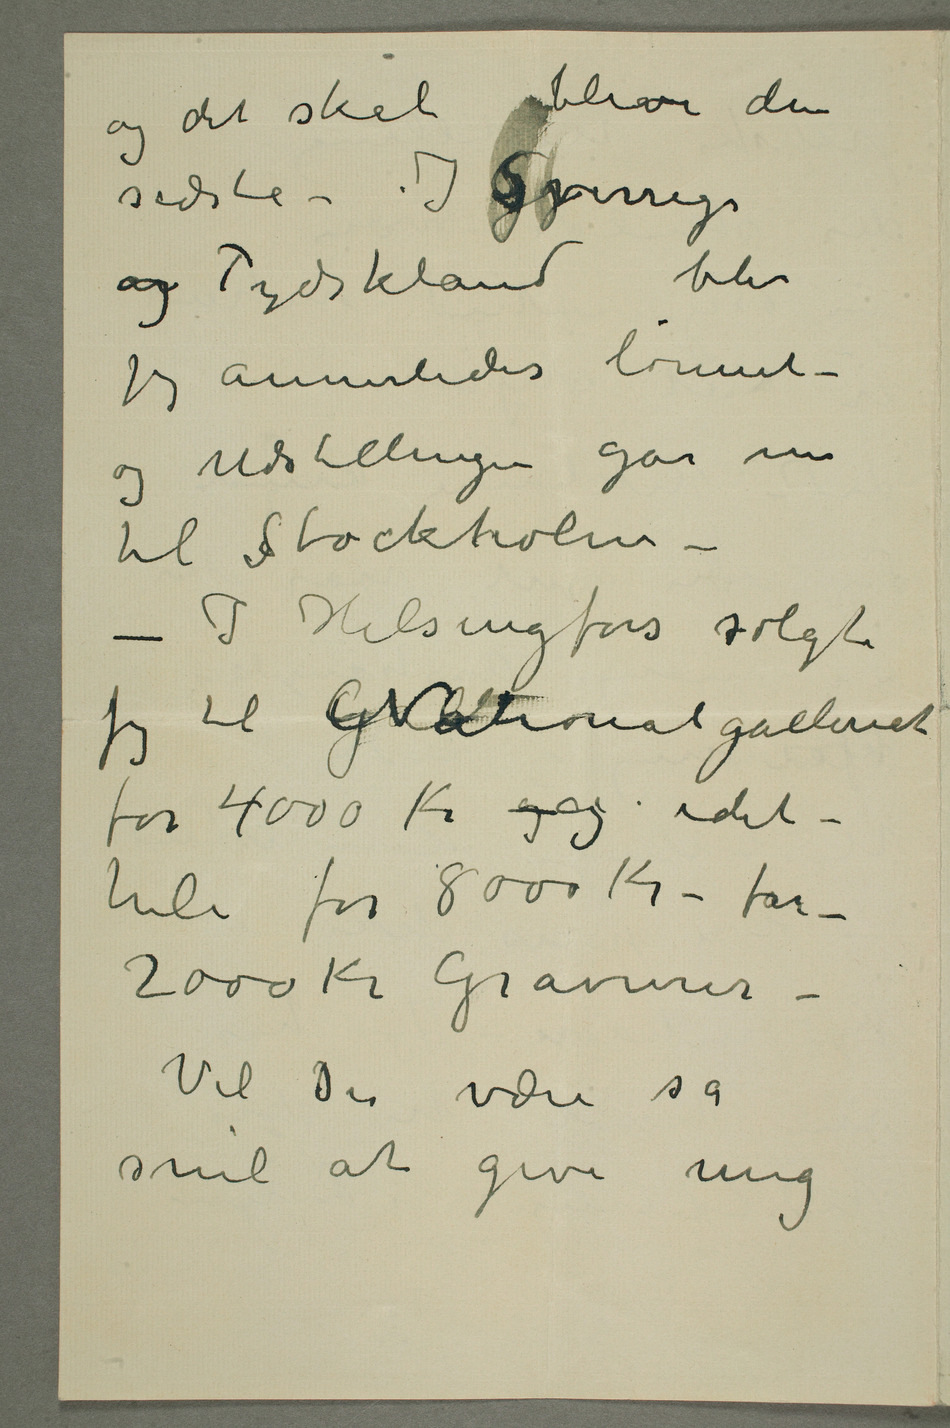 og det skal blive den
sidste – I Sverrige
og Tydskland blir
jeg annerledes lønnet –
og Udstillingen går nu
til Stockholm –
— I Helsingfors solgte
jeg til Nationalgalleriet
for 4000 Kr og idet –
hele for 8000 Kr – for –
2000 Kr Gravurer –
Vil De være så
snil at give mig